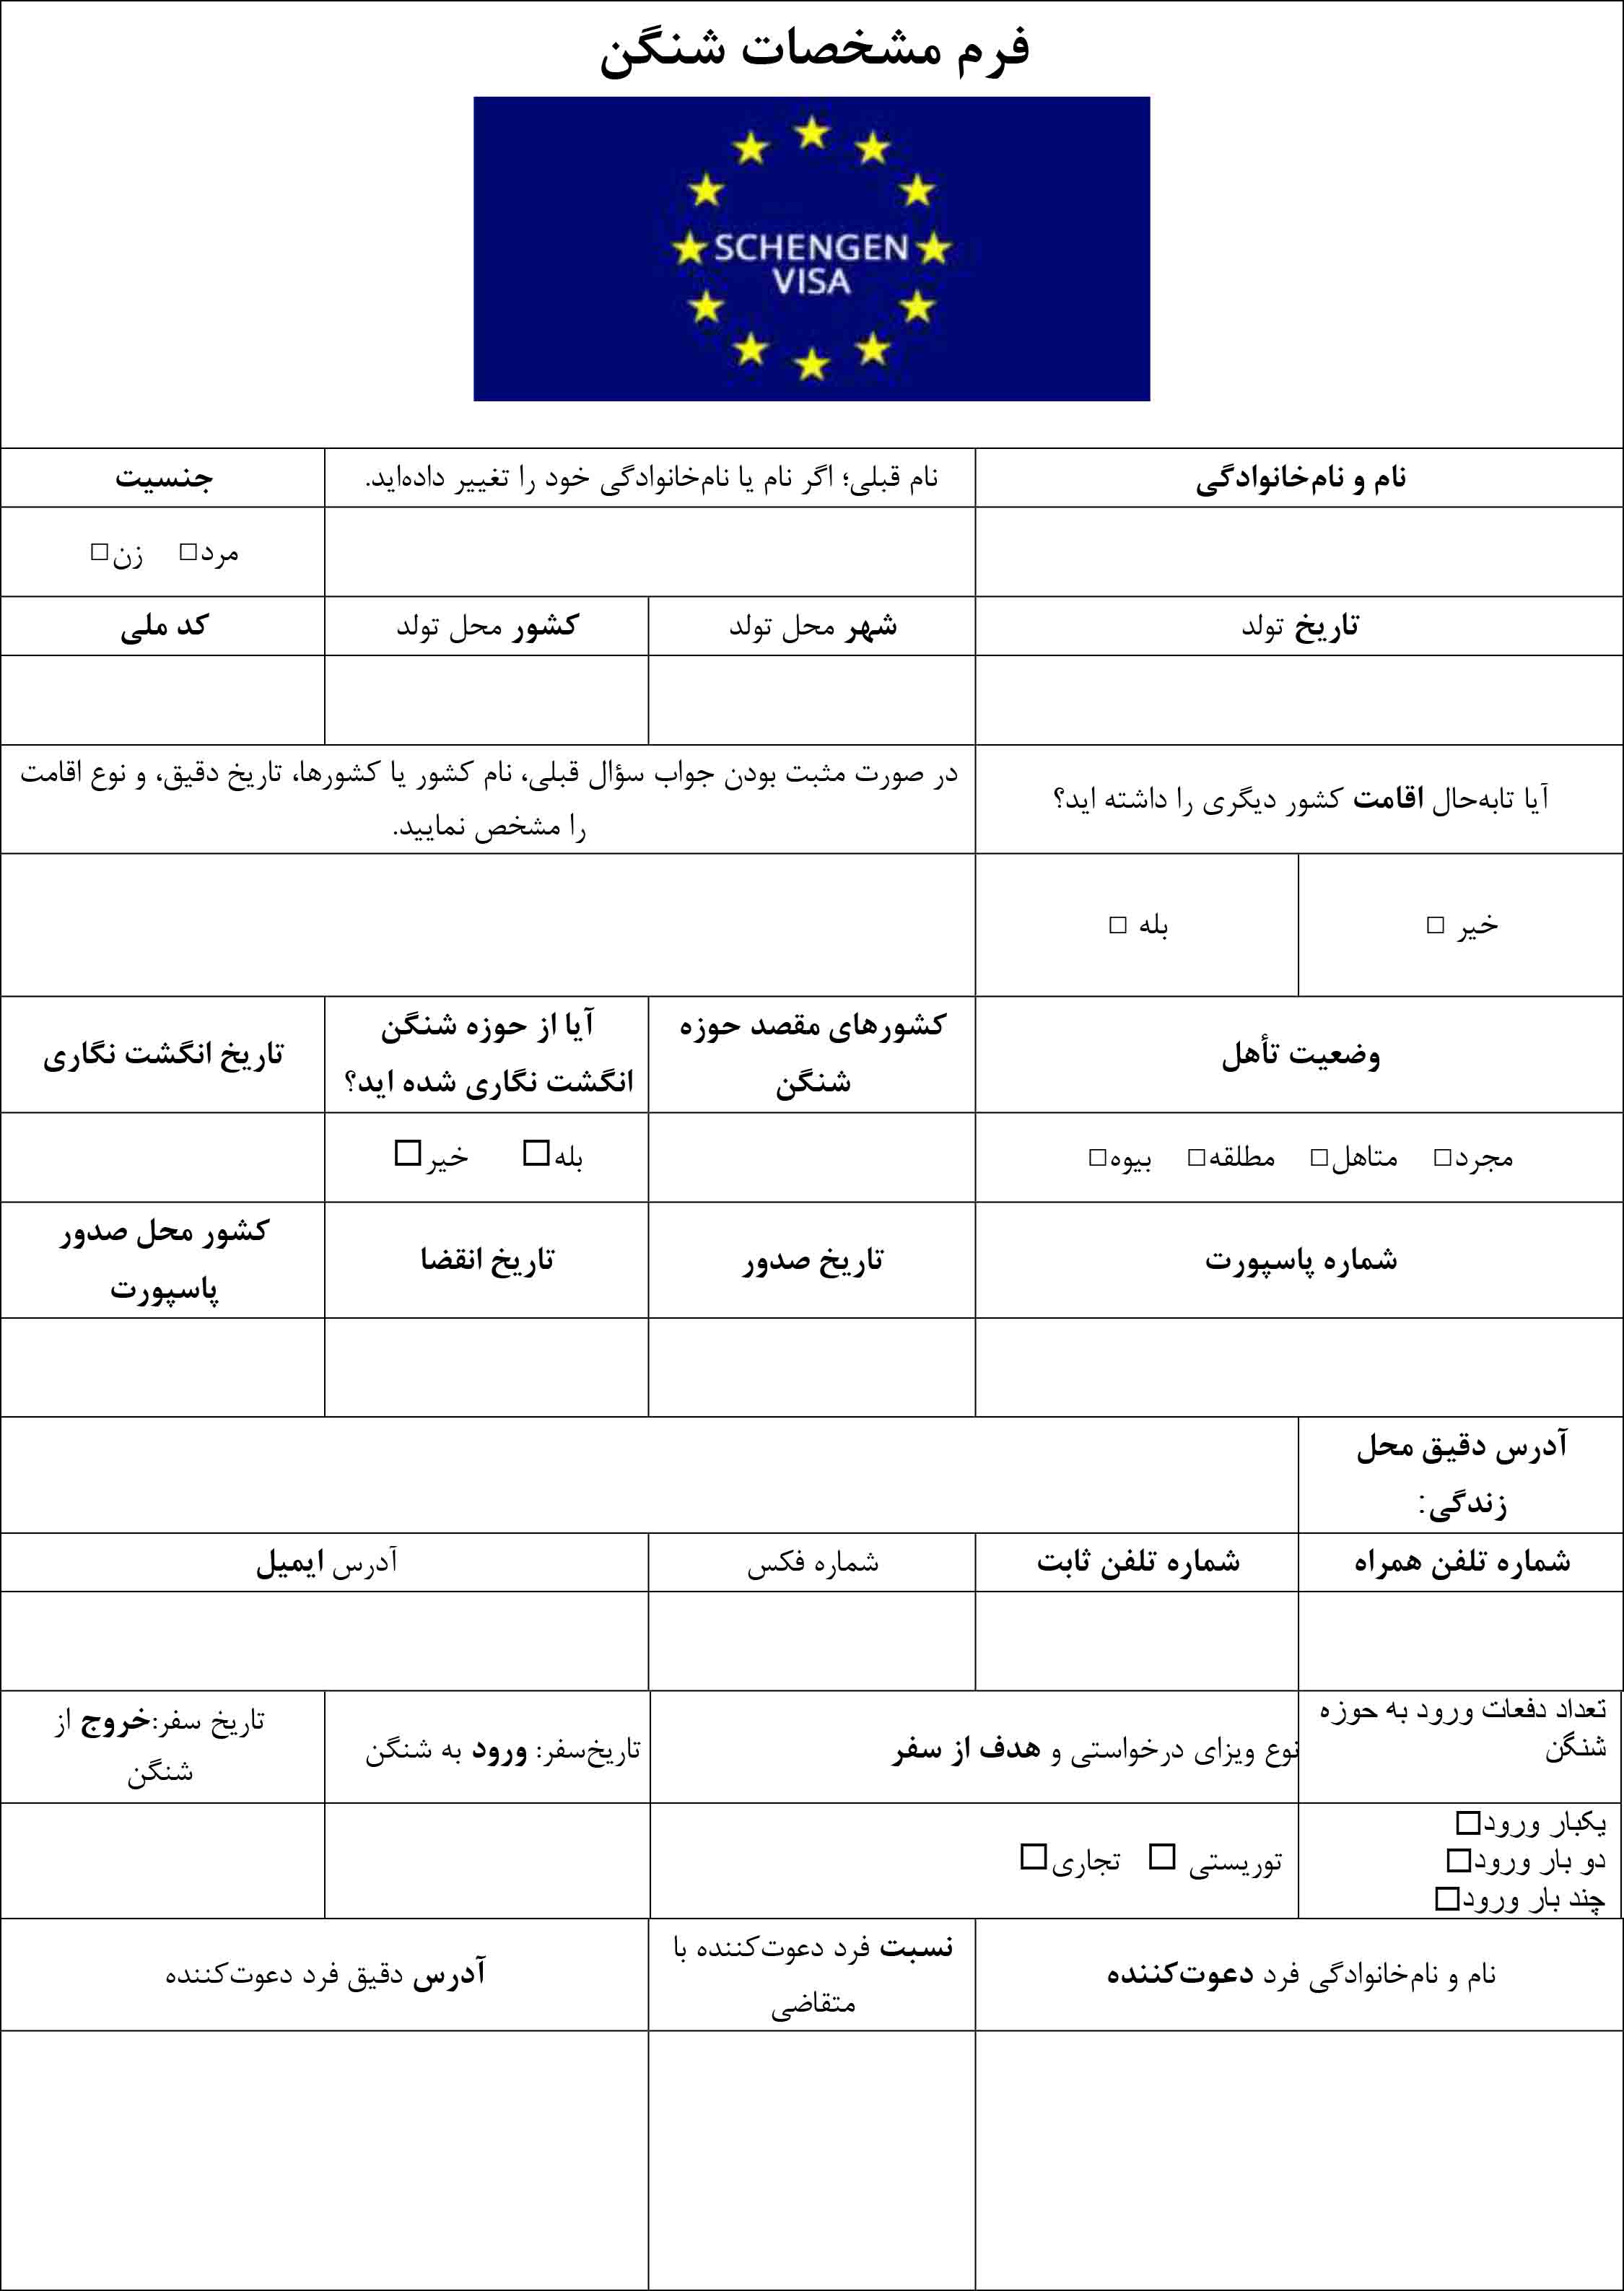 فرم مشخصات شنگن
SCHENGEN
VISA
نام و نام‌خانوادگی
نام قبلی؛ اگر نام یا نام‌خانوادگی خود را تغییر داده‌اید.
جنسیت
مرد□ زن□
تاریخ تولد
شهر محل تولد
کشور محل تولد
کد ملی
آیا تابه‌حال اقامت کشور دیگری را داشته اید؟
در صورت مثبت بودن جواب سؤال قبلی، نام کشور یا کشورها، تاریخ دقیق، و نوع اقامت
را مشخص نمایید.
خیر □
بله □
وضعیت تأهل
کشورهای مقصد حوزه
شنگن
آیا از حوزه شنگن
انگشت نگاری شده اید؟
تاریخ انگشت نگاری
مجرد□ متاهل□ مطلقه□ بیوه□
بله□ خیر□
شماره پاسپورت
تاریخ صدور
تاریخ انقضا
کشور محل صدور
پاسپورت
آدرس دقیق محل
زندگی:
شماره تلفن همراه
شماره تلفن ثابت
شماره فکس
آدرس ایمیل
تعداد دفعات ورود به حوزه
شنگن
نوع ویزای درخواستی و هدف از سفر
تاریخ‌سفر: ورود به شنگن
تاریخ سفر:خروج از
شنگن
یکبار ورود□
دو بار ورود□
چند بار ورود□
توریستی □ تجاری□
نام و نام‌خانوادگی فرد دعوت‌کننده
نسبت فرد دعوت‌کننده با
متقاضی
آدرس دقیق فرد دعوت‌کننده